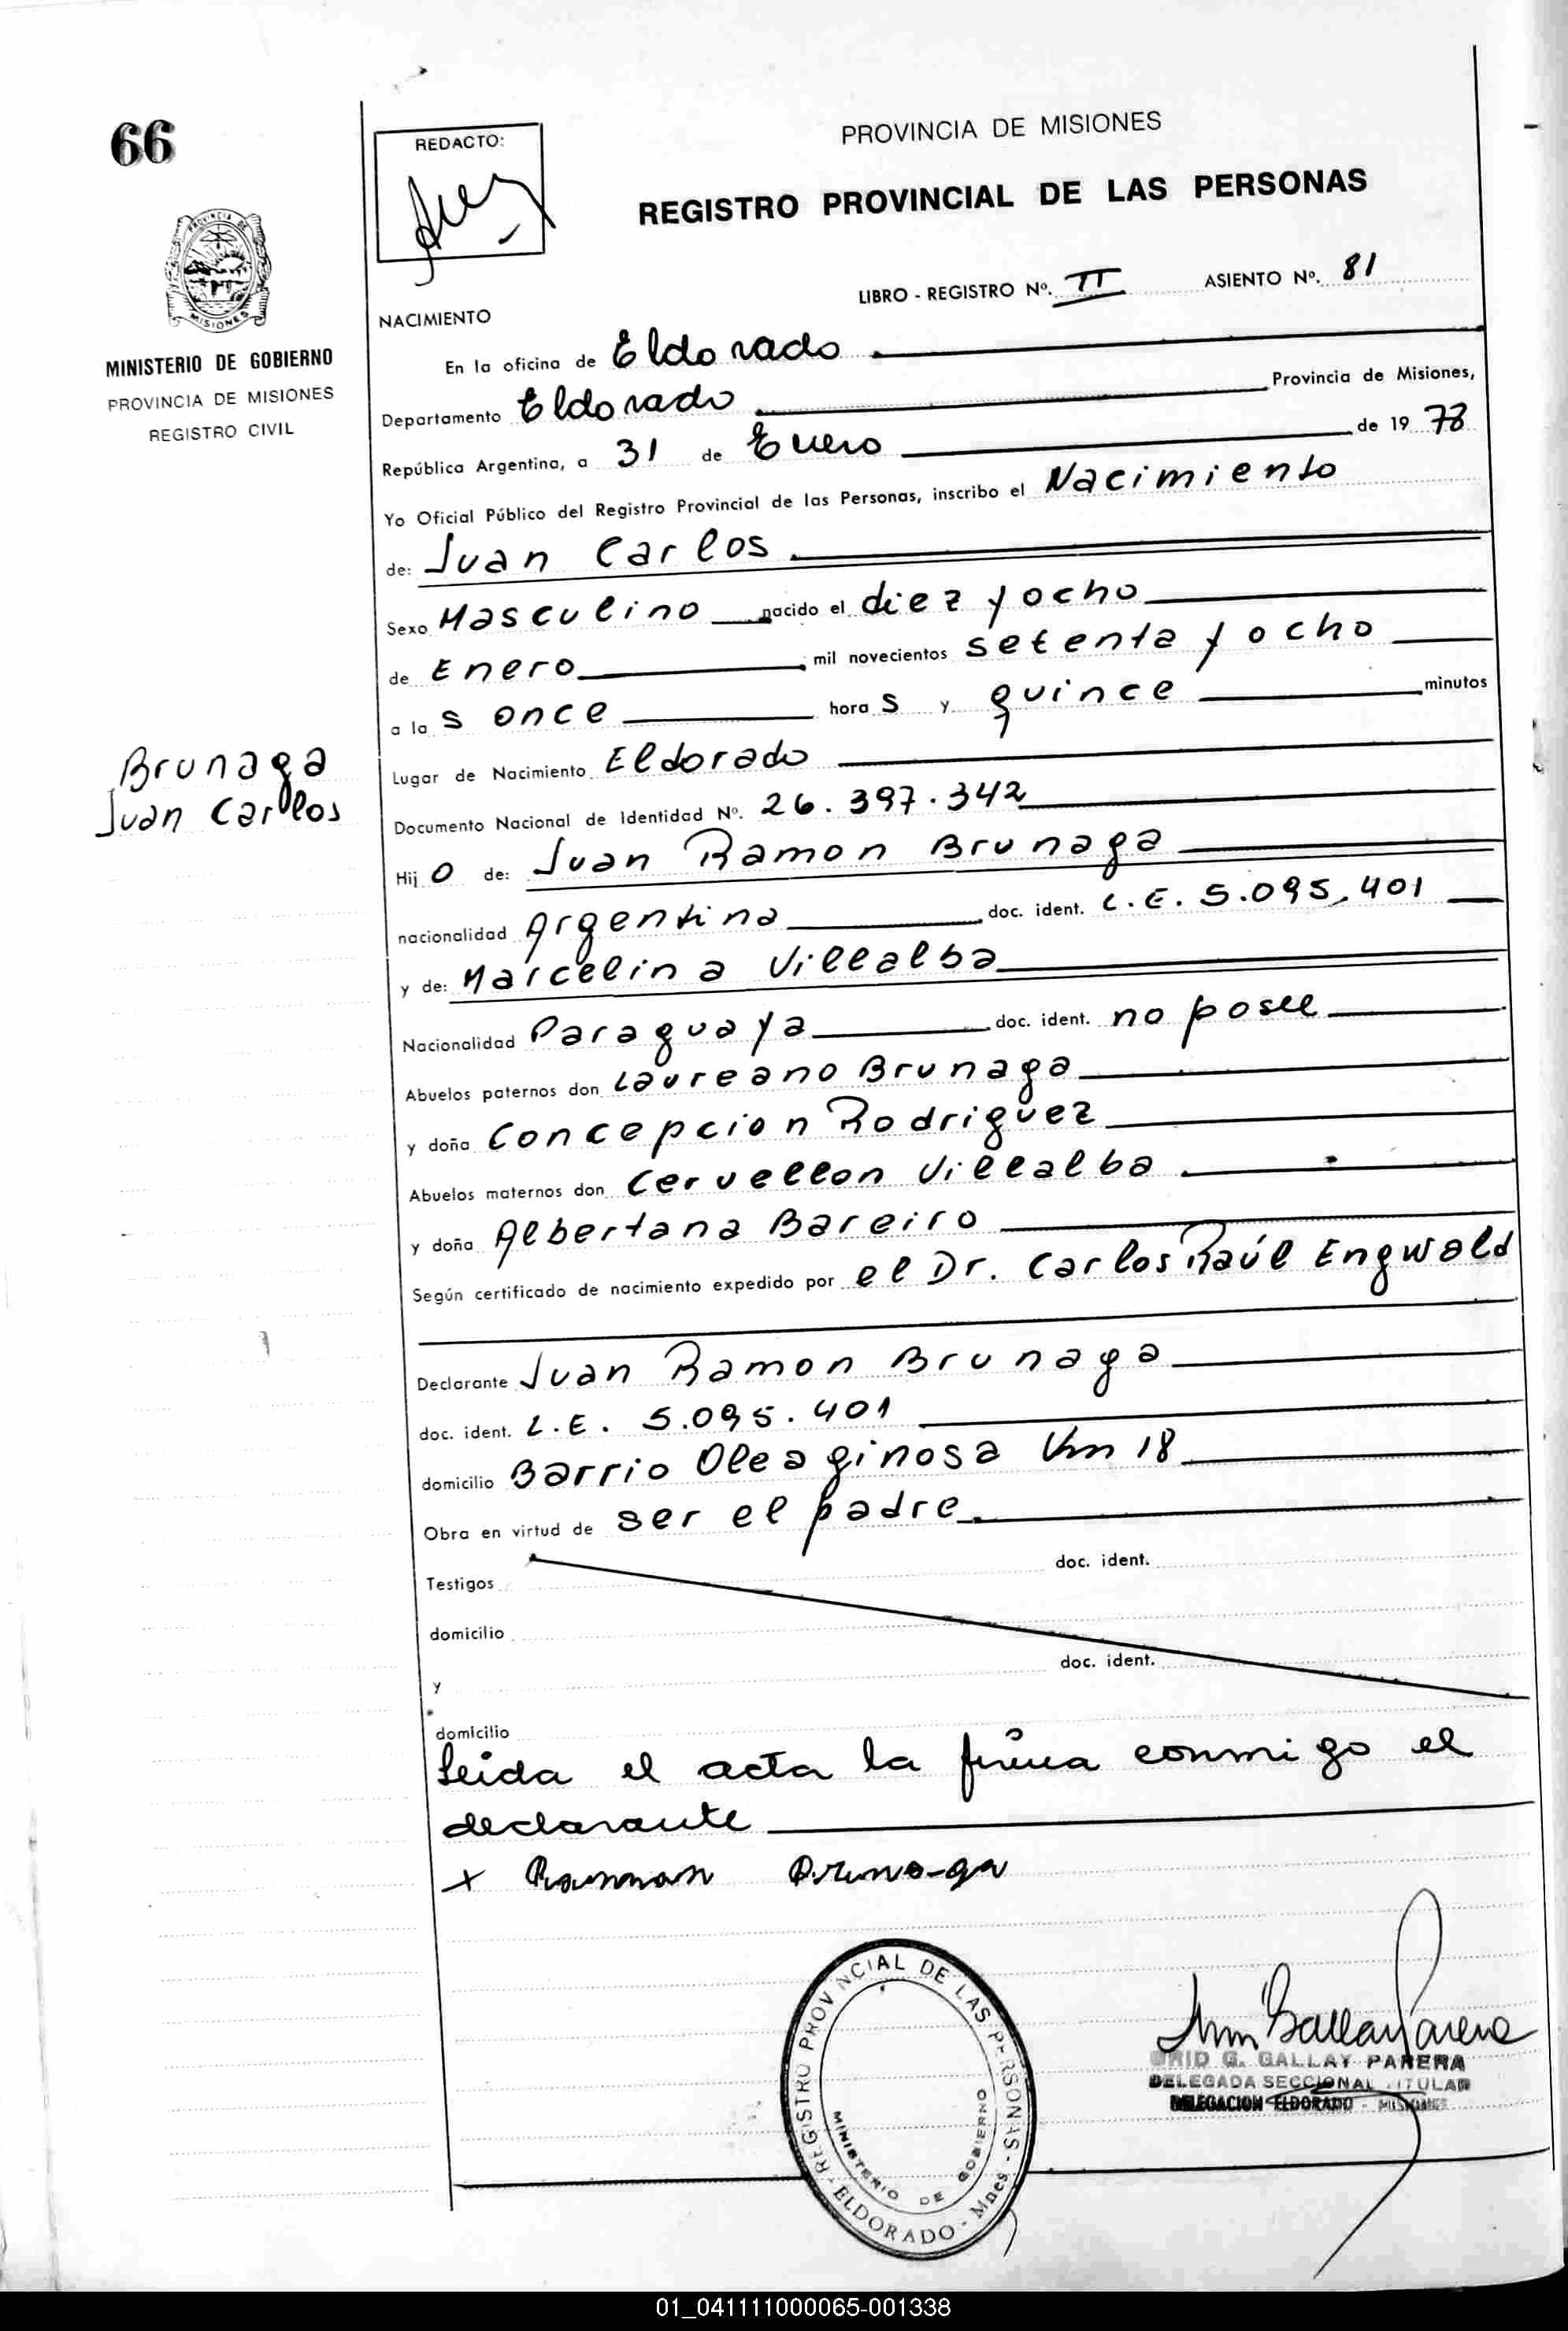 66
REDACTO:
PROVINCIA DE MISIONES
REGISTRO PROVINCIAL DE LAS PERSONAS
LIBRO - REGISTRO Nº. II ASIENTO Nº. 81
PROVINCIA DE
MISIONES
MINISTERIO DE GOBIERNO
PROVINCIA DE MISIONES
REGISTRO CIVIL
NACIMIENTO
En la oficina de Eldorado
Departamento Eldorado Provincia de Misiones,
República Argentina, a 31 de Enero de 19 78
Yo Oficial Público del Registro Provincial de las Personas, inscribo el Nacimiento
de: Juan Carlos
Sexo Masculino nacido el diez y ocho
de Enero mil novecientos setenta y ocho
a la s once hora s y quince minutos
Brunaga
Juan Carlos
Lugar de Nacimiento Eldorado
Documento Nacional de Identidad Nº. 26.397.342
Hij o de: Juan Ramon Brunaga
nacionalidad Argentina doc. ident. L.E. 5.095.401
y de: Marcelina Villalba
Nacionalidad Paraguaya doc. ident. no posee
Abuelos paternos don Laureano Brunaga
y doña Concepcion Rodriguez
Abuelos maternos don Cervellon Villalba
y doña Albertana Bareiro
Según certificado de nacimiento expedido por el Dr. Carlos Raúl Engwald
Declarante Juan Ramon Brunaga
doc. ident. L.E. 5.095.401
domicilio Barrio Oleaginosa Km 18
Obra en virtud de ser el padre
Testigos doc. ident.
domicilio
y doc. ident.
domicilio
Leida el acta la firma conmigo el
declarante
x Ramman Bruno-ga
REGISTRO PROVINCIAL DE LAS PERSONAS - ELDORADO - Mnes.
MINISTERIO DE GOBIERNO
G. GALLAY PARERA
DELEGADA SECCIONAL TITULAR
DELEGACION ELDORADO - MISIONES
01_041111000065-001338